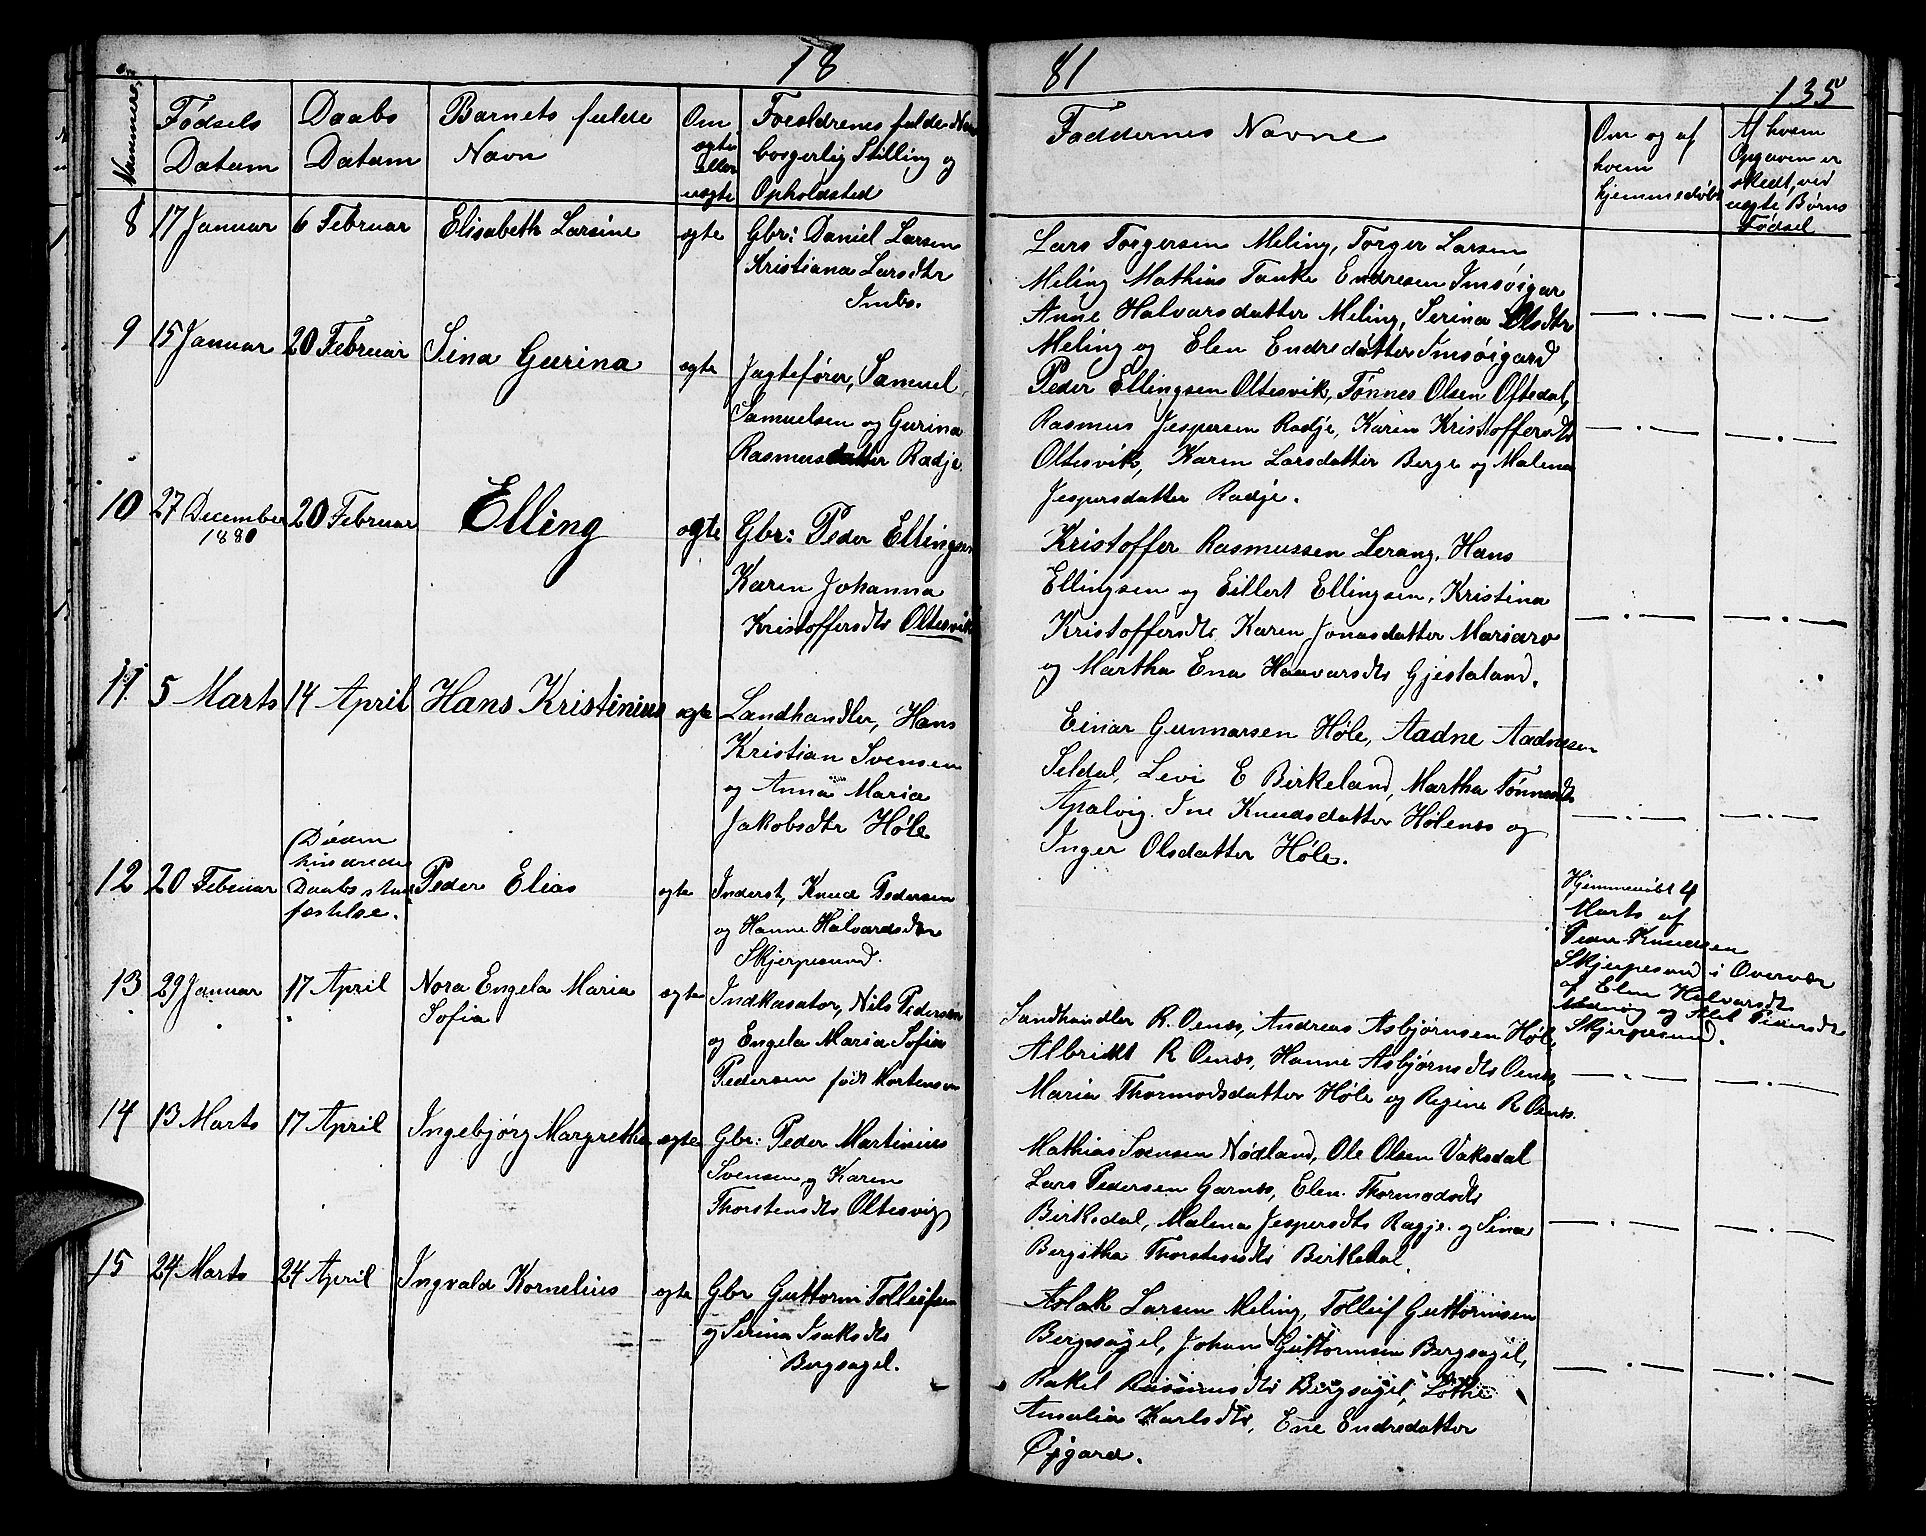 18
81
135
Nummere
Fødsels
Datum
Daabs
Datum
Barnets fulde
Navn
Om
ægte
eller
uægte
Foreldrenes fulde Navn
borgerlig Stilling og
Opholdsted
Faddernes Navne
Om og af
hvem
hjemmedøbt
Af hvem
Opgaven er
skedt, ved
uægte Børns
Fødsel
8
17 Januar
6 Februar
Elisabeth Larsine
ægte
Gbr: Daniel Larsen
Kristiana Larsdtr
Ims.
Lars Torgersen Meling, Torger Larsen
Meling Mathias Tanke Endresen Imsøigar
Anne Halvarsdatter Meling, Serina Olsdtr
Meling og Elen Endredatter Imsøigard
9
15 Januar
20 Februar
Sina Gurina
ægte
Jagtefører, Samuel
Samuelsen og Gurina
Rasmusdatter Radje
Peder Ellingsen Oltesvik, Tønnes Olsen Oftedal,
Rasmus Jespersen Radje, Karen Kristoffersdtr
Oltesvik, Karen Larsdatter Berge og Malena
Jespersdatter Radje.
10
27 December
1880
20 Februar
Elling
ægte
Gbr: Peder Ellingsen
Karen Johanna
Kristoffersdtr Oltesvik
Kristoffer Rasmussen Lerang, Hans
Ellingsen og Eillert Ellingsen, Kristina
Kristoffersdtr, Karen Jonasdatter Mariaro
og Martha Ena Haavarsdtr Gjestaland.
11
5 Marts
14 April
Hans Kristinius
ægte
Landhandler, Hans
Kristian Svensen
og Anna Maria
Jakobsdtr Høle
Einar Gunnarsen Høle, Aadne Aadnesen
Seldal, Levi E Birkeland, Martha Tønnesdtr
Apalvig. Ine Knudsdatter Hølenes og
Inger Olsdatter Høle.
12
20 Februar
Døden
hindrede
Daabs stad
fæstelse.
Peder Elias
ægte
Inderst, Knud Pedersen
og Hanne Halvardsdtr
Skjerpesund.
Hjemmedøbt 4
Marts af
Peder Knudsen
Skjerpesund i Overvær
af Elen Halvarsdtr
og Pedersdtr
Skjerpesund.
13
29 Januar
17 April
Nora Engela Maria
Sofia
ægte
Indkasator, Nils Pedersen
og Engela Maria Sofia
Pedersen født Mortensen
Landhandler R. Oenæs, Andreas Asbjørnsen Høle
Albridt R Oenæs, Hanne Asbjørnsdtr Oenæs
Maria Thormodsdatter Høle og Regine R Oenæs.
14
13 Marts
17 April
Ingebjørg Margretha
ægte
Gbr: Peder Martinius
Svensen og Karen
Thorstensdtr Oltesvig
Mathias Svensen Nødland, Ole Olsen Vaksdal
Lars Pedersen Garnes, Elen Thormodsdtr
Birkedal, Malena Jespersdtr Ragje og Sina
Bergitha Thorstensdtr Birkedal.
15
24 Marts
24 April
Ingvald Kornelius
ægte
Gbr Guttorm Tolleifsen
og Serina Isaksdtr
Bergsagel.
Aslak Larsen Meling, Tolleif Guttormsen
Bergsagel, Johan Guttormsen Bergsagel,
Rakel Rasmusdtr Bergsagel, Lothe
Amalia Karlsdtr, Ene Endredatter
Øjgard.